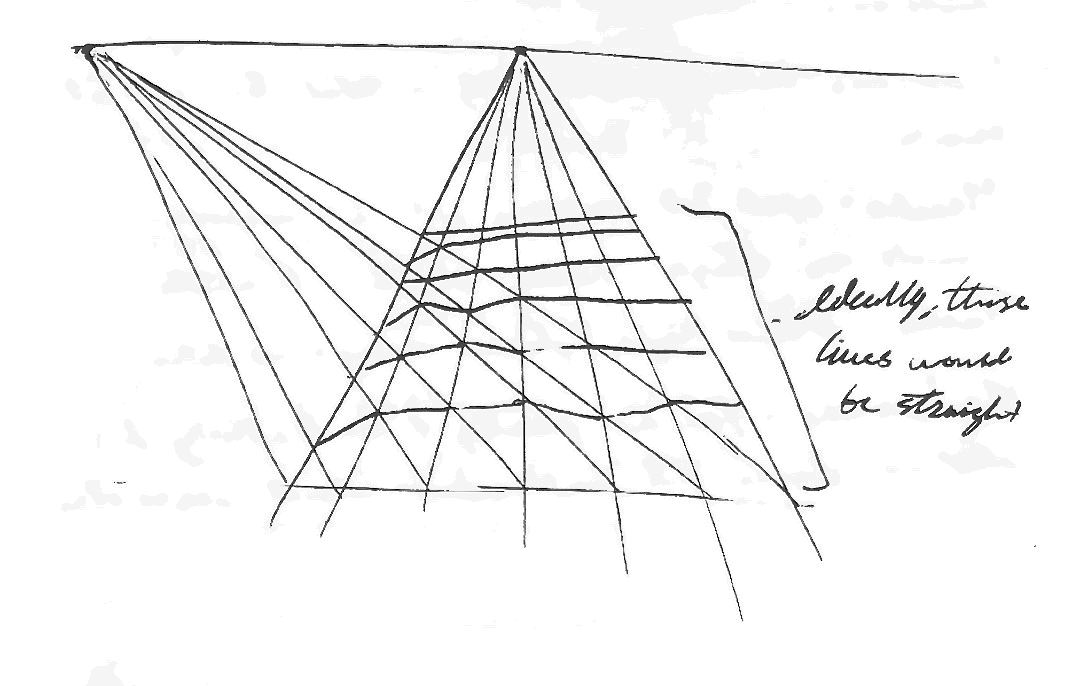 Ideally, these
lines would
be straight